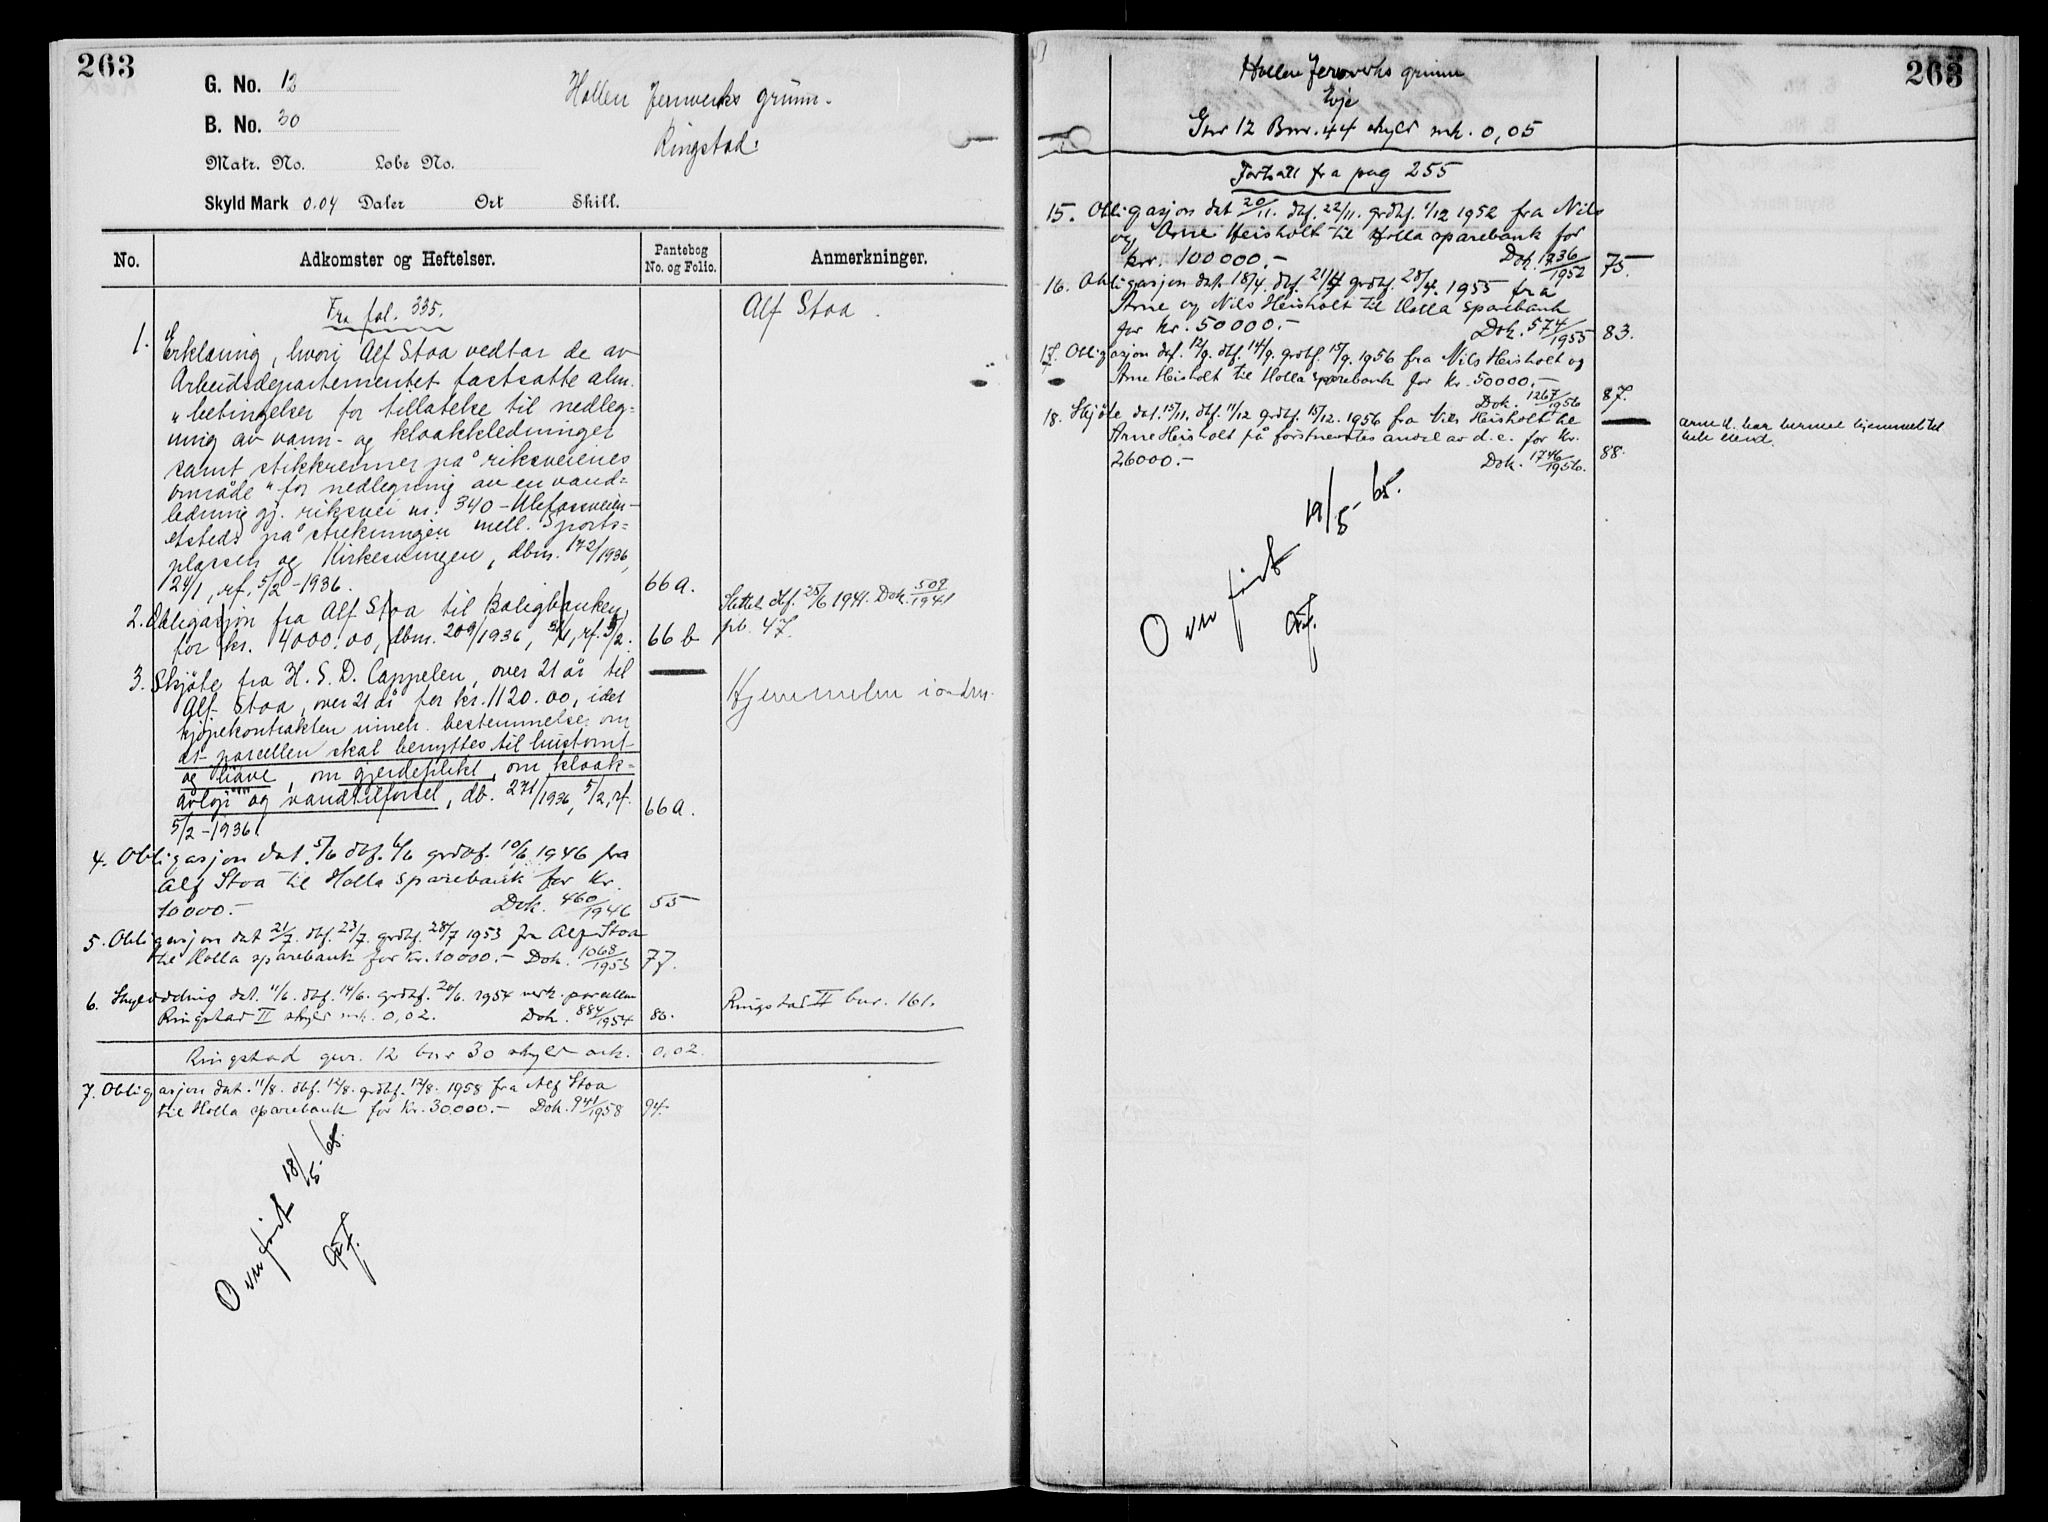 263
G. No. 12
B. No. 30
Hollen Jernverks grunn.
Ringstad.
Matr. No. Lobe No.
Skyld Mark 0.04 Daler Ort Skill.
No. Adkomster og Heftelser. Pantebog No. og Folio. Anmerkninger.
Fra fol. 335.
Alf Stoa.
1. Erklæring, hvori Alf Stoa vedtar de av
Arbeidsdepartementet fastsatte alm.
"betingelser for tillatelse til nedleg-
ning av vann- og kloakkledninger
samt stikkrenner på riksveienes
område" for nedlegning av en vand-
ledning gj. riksvei nr. 340 - Ulefossveien -
etsteds på strekningen mell. Sports-
plassen og Kirkesvingen, dbm. 172/1936,
24/1, rf. 5/2-1936. 66a.
2. Obligasjon fra Alf Stoa til Boligbanken
for kr. 4000.00, dbm. 209/1936, 31/1, rf. 5/2. 66 b
Slettet dbf. 25/6 1941. Dok. 509/1941
pb. 47.
3. Skjøte fra H. S. D. Cappelen, over 21 år til
Alf Stoa, over 21 år for kr. 1120.00, idet
kjøpekontrakten inneh. bestemmelse om
at parcellen skal benyttes til hustomt
og have, om gjerdeplikt, om kloak-
avløp og vandtilførsel, db. 271/1936, 5/2, rf.
5/2-1936. 66a.
Hjemmelen i orden.
4. Obligasjon dat. 5/6 dbf. 6/6 grdbf. 10/6 1946 fra
Alf Stoa til Holla sparebank for Kr.
10000.- Dok. 460/1946 55
5. Obligasjon dat 21/7. dbf. 23/7. grdbf. 28/7 1953 fra Alf Stoa
til Holla sparebank for Kr. 10000.- Dok. 1068/1953 77.
6. Skylddeling dat. 11/6. dbf. 14/6. grdbf. 20/6. 1954 verk. parcellen
Ringstad II skyld mk. 0,02. Dok. 884/1954 80.
Ringstad II bnr. 161.
Ringstad gnr. 12 bnr 30 skyld mk. 0,02.
7. Obligasjon dat. 11/8. dbf. 12/8. grdbf. 12/8. 1958 fra Alf Stoa
til Holla sparebank for Kr. 30.000.- Dok. 941/1958 94.
Overført 18/5-65.
263
Hollen Jernverks grunn
Evje
Gnr 12 Bnr. 44 skyld mk. 0,05
Fortsatt fra pag 255
15. Obligasjon dat 20/11. dbf. 22/11. grdbf. 1/12 1952 fra Nils
og Arne Heisholt til Holla sparebank for
kr. 100000.- Dok. 1736/1952 75.
16. Obligasjon dat. 18/4. dbf. 21/4 grdbf. 28/4. 1955 fra
Arne og Nils Heisholt til Holla sparebank
for Kr. 50000.- Dok. 574/1955 83.
17. Obligasjon dat. 12/9. dbf. 14/9. grdbf. 15/9. 1956 fra Nils Heisholt og
Arne Heisholt til Holla sparebank for Kr. 50000.-
Dok. 1267/1956 87.
18. Skjøte dat. 15/11. dbf. 11/12 grdbf. 15/12. 1956 fra Nils Heisholt til
Arne Heisholt på førstnevntes andel av d.e. for Kr.
26000.- Dok. 1746/1956. 88.
Arne H. har hermed hjemmel til
hele eiend.
Overført 19/5-65.